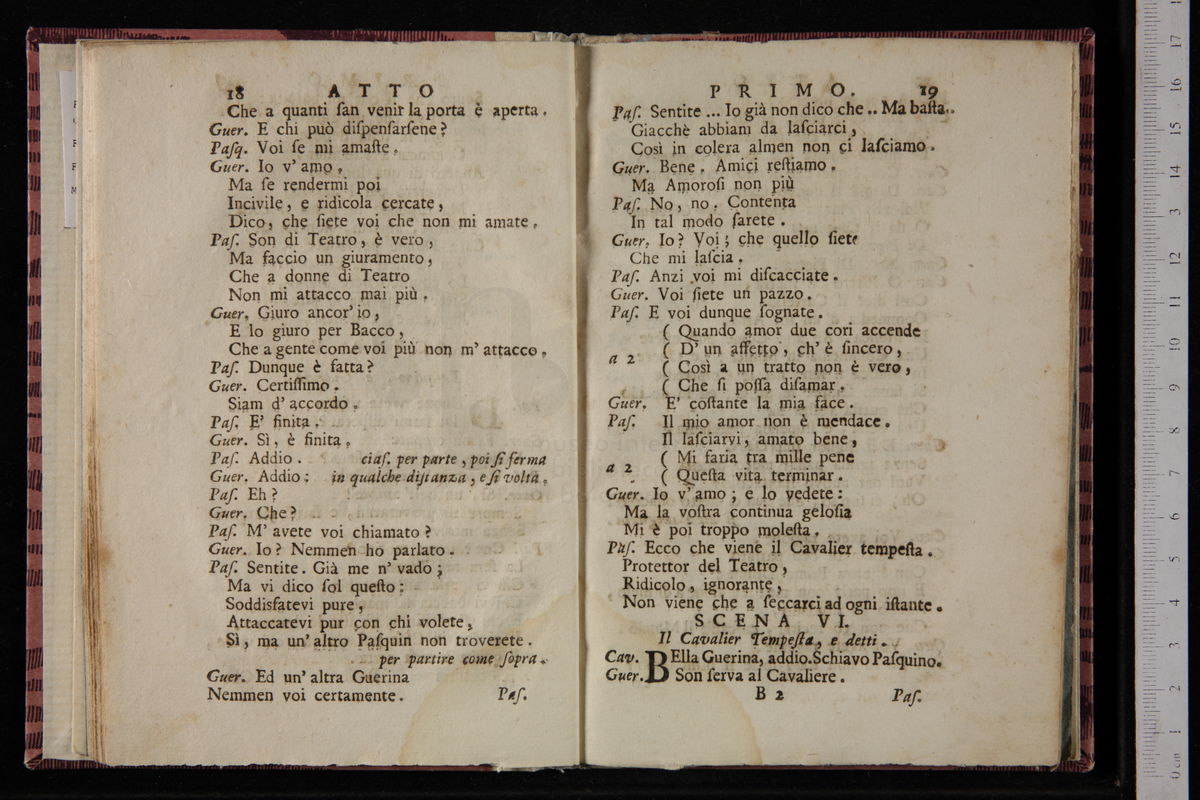 18 ATTO
Che a quanti ſan venir la porta è aperta.
Guer. E chi può diſpenſarſene?
Paſq. Voi ſe mi amaſte.
Guer. Io v' amo,
Ma ſe rendermi poi
Incivile, e ridicola cercate,
Dico, che ſiete voi che non mi amate.
Paſ. Son di Teatro, è vero,
Ma faccio un giuramento,
Che a donne di Teatro
Non mi attacco mai più.
Guer. Giuro ancor' io,
E lo giuro per Bacco,
Che a gente come voi più non m' attacco.
Paſ. Dunque è fatta?
Guer. Certiſſimo.
Siam d' accordo.
Paſ. E' finita.
Guer. Sì, è finita.
Paſ. Addio. ciaſ. per parte, poi ſi ferma
Guer. Addio: in qualche diſtanza, e ſi volta.
Paſ. Eh?
Guer. Che?
Paſ. M' avete voi chiamato?
Guer. Io? Nemmen ho parlato.
Paſ. Sentite. Già me n' vado;
Ma vi dico ſol queſto:
Soddisfatevi pure,
Attaccatevi pur con chi volete,
Sì, ma un' altro Paſquin non troverete.
per partire come ſopra.
Guer. Ed un' altra Guerina
Nemmen voi certamente. Paſ.
PRIMO. 19
Paſ. Sentite ... Io già non dico che .. Ma baſta..
Giacchè abbiam da laſciarci,
Così in colera almen non ci laſciamo.
Guer. Bene. Amici reſtiamo.
Ma Amoroſi non più
Paſ. No, no. Contenta
In tal modo ſarete.
Guer. Io? Voi; che quello ſiete
Che mi laſcia.
Paſ. Anzi voi mi diſcacciate.
Guer. Voi ſiete un pazzo.
Paſ. E voi dunque ſognate.
( Quando amor due cori accende
a 2 ( D' un affetto, ch' è ſincero,
( Così a un tratto non è vero,
( Che ſi poſſa diſamar.
Guer. E' coſtante la mia face.
Paſ. Il mio amor non è mendace.
Il laſciarvi, amato bene,
a 2 ( Mi faria tra mille pene
( Queſta vita terminar.
Guer. Io v' amo; e lo vedete:
Ma la voſtra continua geloſia
Mi è poi troppo moleſta.
Paſ. Ecco che viene il Cavalier tempeſta.
Protettor del Teatro,
Ridicolo, ignorante,
Non viene che a ſeccarci ad ogni iſtante.
SCENA VI.
Il Cavalier Tempeſta, e detti.
Cav. BElla Guerina, addio. Schiavo Paſquino.
Guer. Son ſerva al Cavaliere.
B 2 Paſ.